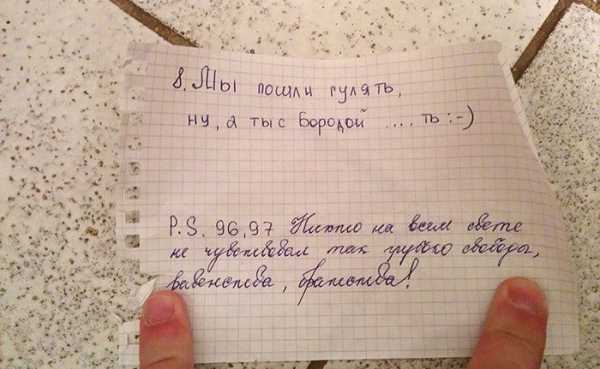 8. Мы пошли гулять,
ну, а ты с бородой .... ть :-)
P.S. 96,97 Никто на всем свете
не чувствовал так глубоко свободы,
равенства, братства!